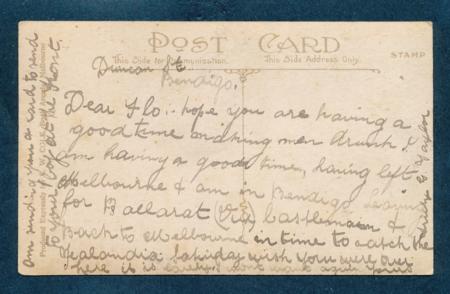 POST CARD
This Side for Communication.
This Side Address Only.
STAMP
Duncan St
Bendigo.
Dear Flo.. hope you are having a
good time making men drunk I
am having a good time, having left
Melbourne & am in Bendigo leaving
for Ballarat (via) Castlemain &
Back to Melbourne in time to catch the
Zealandia Saturday wish you were over
here it is lovely I wont want again yours
Taylor
am sending you a card to send
to your at the Front.